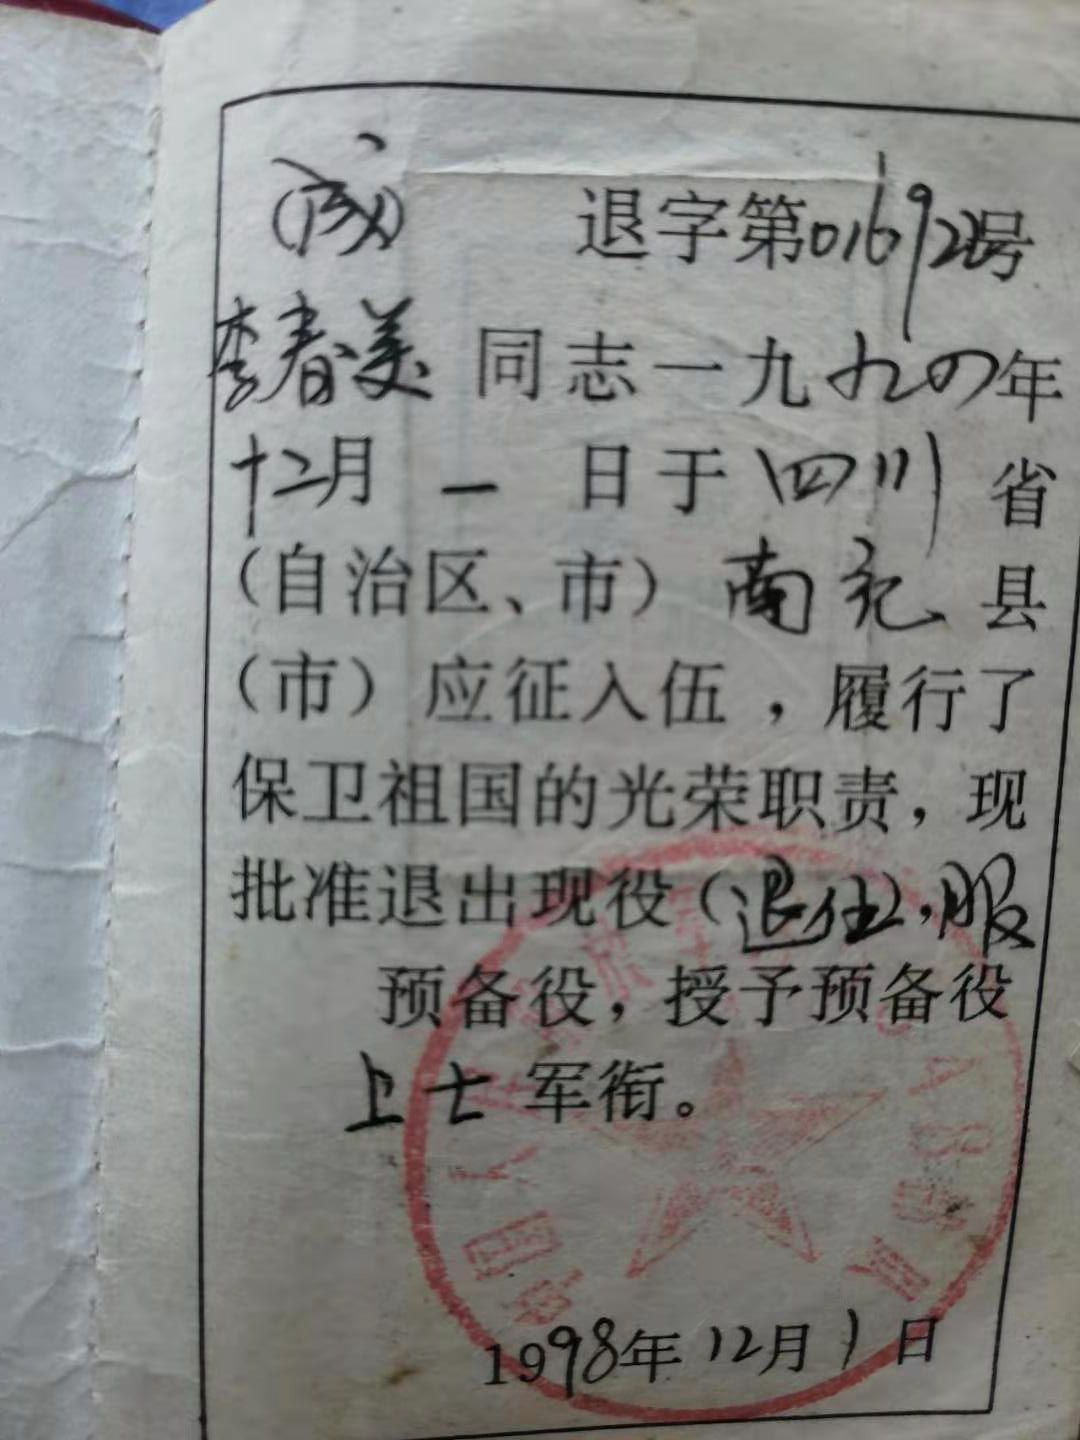 (成) 退字第016922号
李春美同志一九九四年
十二月一日于四川省
（自治区、市）南充县
（市）应征入伍，履行了
保卫祖国的光荣职责，现
批准退出现役（退伍），服
预备役，授予预备役
上士军衔。
1998年12月1日